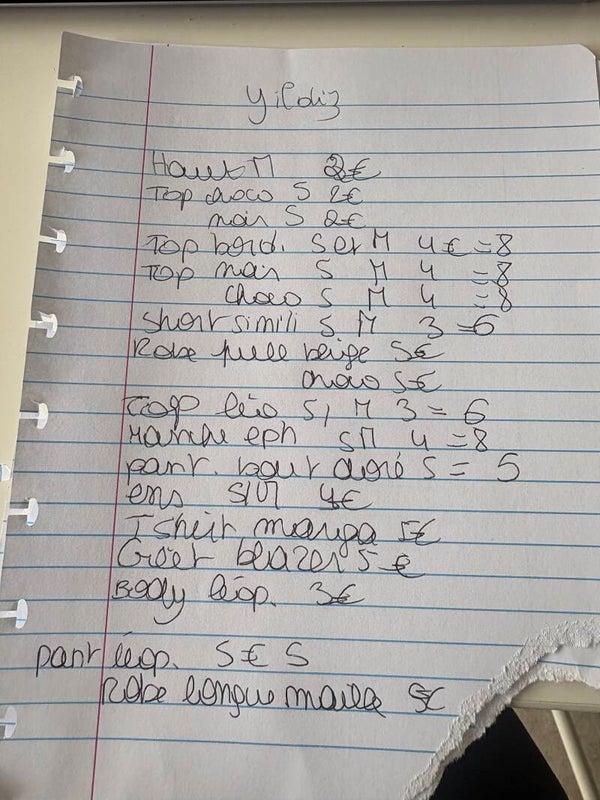 Yildiz
Haut M 2€
Top choco S 2€
noir S 2€
Top bord. S et M 4€ = 8
Top noir S M 4 = 8
choco S M 4 = 8
Short simili S M 3 = 6
Robe pull beige 5€
choco 5€
Top léo S, M 3 = 6
Manche eph SM 4 = 8
pant. bour doré S = 5
ens S/M 4€
T shirt manga 5€
blazer 5€
Body léop. 3€
pant léop. 5€ S
Robe longue maille 5€